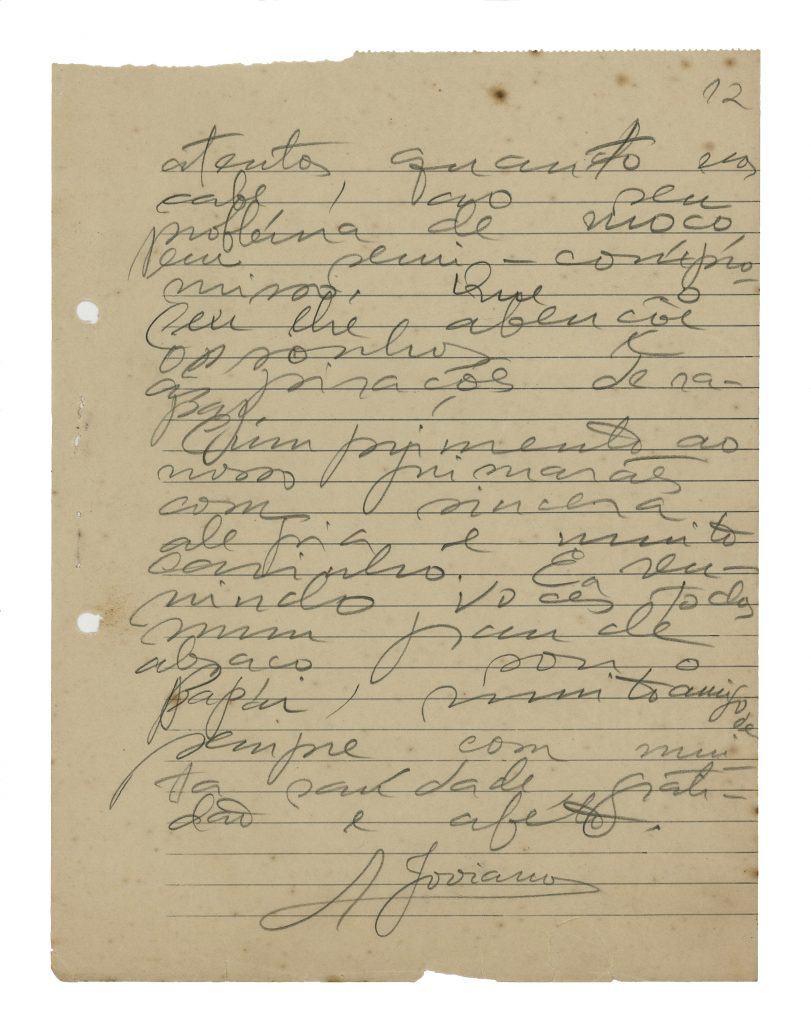 12
atentos quanto nos
cabe, ao seu
problema de moço
em semi-compro-
misso. Que o
seu lhe abençõe
os sonhos e
as pirações de ra-
paz.
Cumprimento ao
nosso Guimarães
com sincera
alegria e muito
carinho. E reu-
nindo vocês todos
num grande
abraço sou o
Papai, muito amigo de
sempre com mui-
ta saudade grati-
dão e afeto.
A Joviano